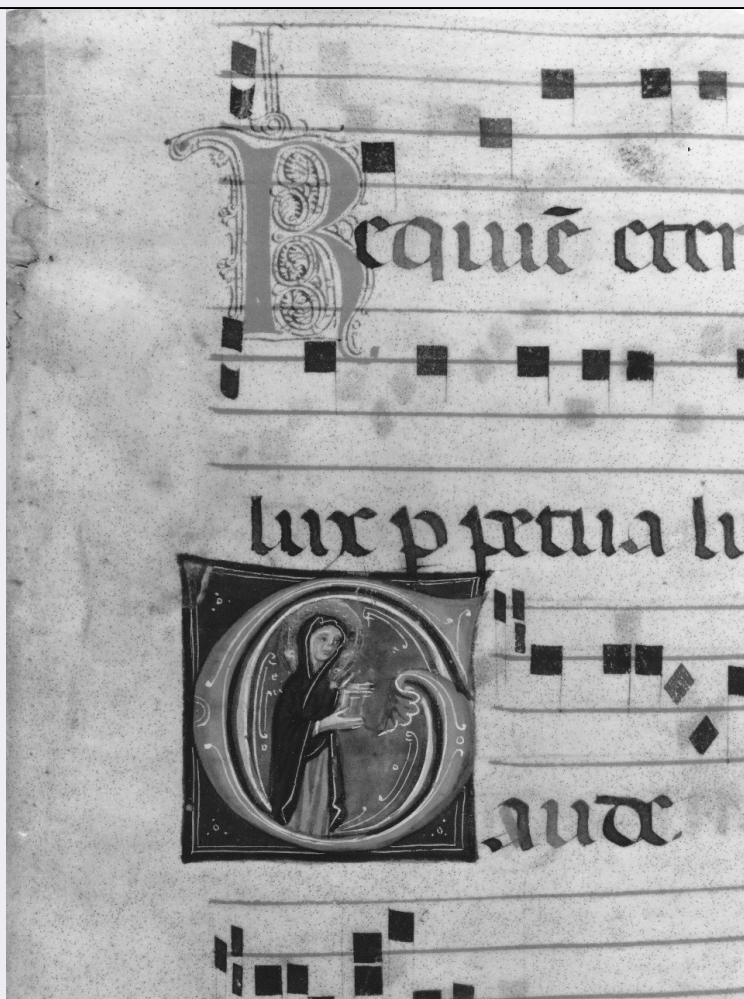 Requiē eter
lux ꝑpetua lu
Gaude